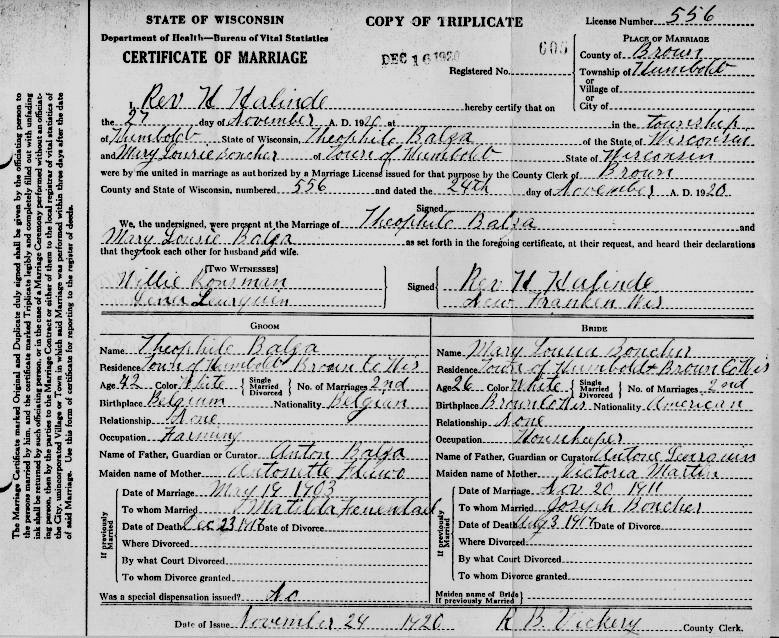 STATE OF WISCONSIN
Department of Health—Bureau of Vital Statistics
CERTIFICATE OF MARRIAGE
COPY OF TRIPLICATE
DEC 16 1920
605
Registered No.
License Number 556
PLACE OF MARRIAGE
County of Brown
Township of Humboldt
or
Village of
or
City of
I, Rev H Halinde hereby certify that on
the 27 day of November A. D. 1920 at in the township
of Humboldt State of Wisconsin, Theophile Balza of the State of Wisconsin
and Mary Lousie Boncher of Town of Humboldt State of Wisconsin
were by me united in marriage as authorized by a Marriage License issued for that purpose by the County Clerk of Brown
County and State of Wisconsin, numbered 556 and dated the 24th day of November A. D. 1920
Signed
We, the undersigned, were present at the Marriage of Theophile Balza and
Mary Lousie Balza as set forth in the foregoing certificate, at their request, and heard their declarations
that they took each other for husband and wife.
[TWO WITNESSES]
Willie Ronsman
Leurquin
Signed
Rev H Halinde
New Franken Wis
GROOM
Name Theophile Balza
Residence Town of Humboldt Brown Co Wis
Age 42 Color White Single Married Divorced No. of Marriages 2nd
Birthplace Belgium Nationality Belgian
Relationship None
Occupation Farming
Name of Father, Guardian or Curator Anton Balza
Maiden name of Mother Antonette
If previously Married
Date of Marriage May 19 1903
To whom Married Matilda
Date of Death Dec 23 1917 Date of Divorce
Where Divorced
By what Court Divorced
To whom Divorce granted
Was a special dispensation issued? No
BRIDE
Name Mary Louisa Boncher
Residence Town of Humboldt Brown Co Wis
Age 26 Color White Single Married Divorced No. of Marriages 2nd
Birthplace Brown Co Wis Nationality American
Relationship None
Occupation Housekeeper
Name of Father, Guardian or Curator Antone
Maiden name of Mother Victoria Martin
If previously Married
Date of Marriage Nov 20 1911
To whom Married Joseph Boncher
Date of Death Aug 3 1917 Date of Divorce
Where Divorced
By what Court Divorced
To whom Divorce granted
Maiden name of Bride
If previously Married
Date of Issue November 24 1920 R B Vickery County Clerk.
The Marriage Certificate marked Original and Duplicate duly signed shall be given by the officiating person to
the persons married by him, and the certificate marked Triplicate legibly and completely filled out with unfading
ink shall be returned by such officiating person, or in the case of a Marriage Ceremony performed without an officiat-
ing person, then by the parties to the Marriage Contract or either of them to the local registrar of vital statistics of
the City, unincorporated Village or Town in which said Marriage was performed within three days after the date
of said Marriage. Use this form of certificate for reporting to the register of deeds.